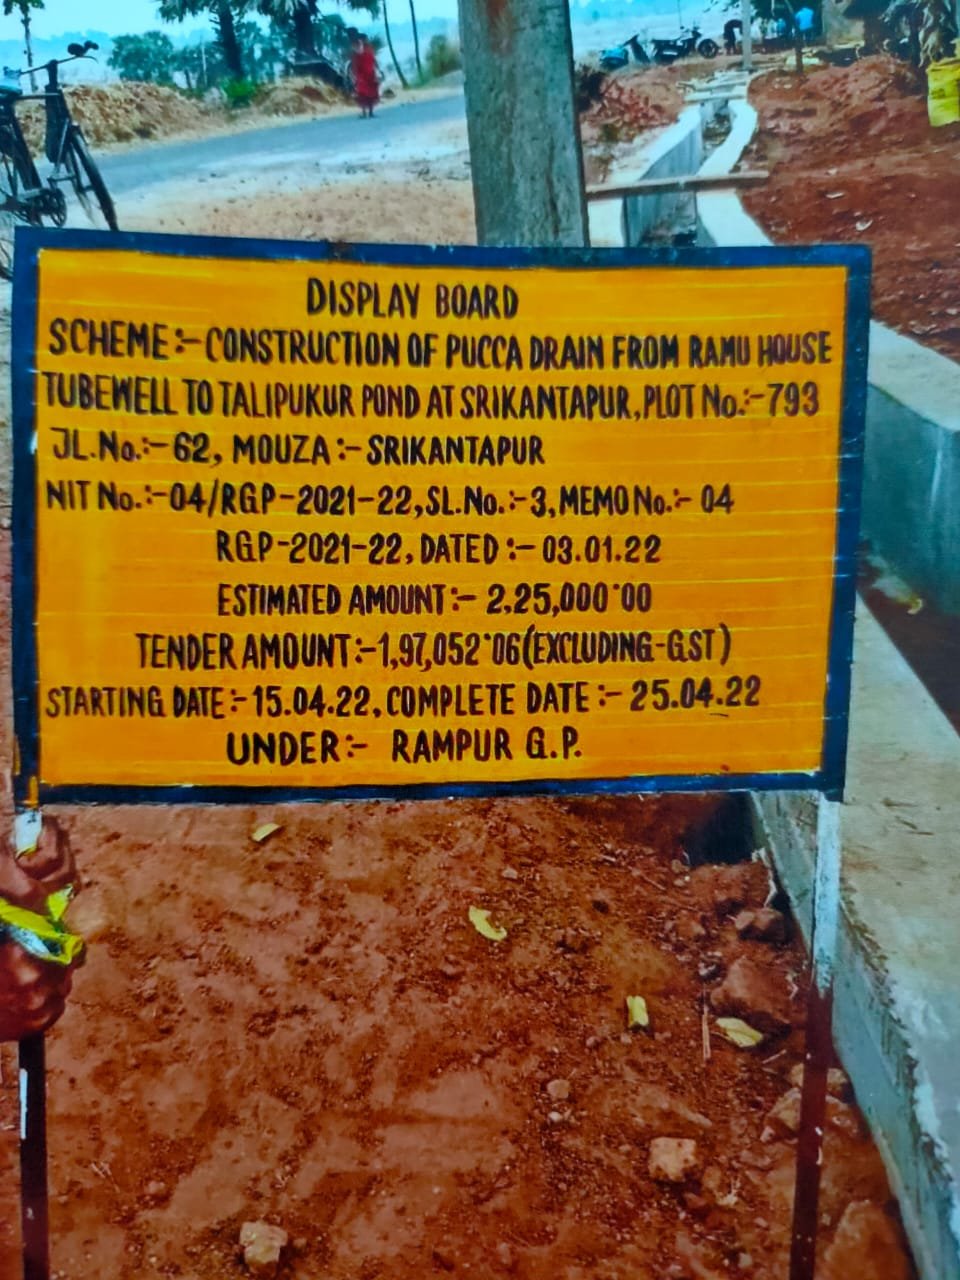 DISPLAY BOARD
SCHEME:-CONSTRUCTION OF PUCCA DRAIN FROM RAMU HOUSE
TUBEWELL TO TALIPUKUR POND AT SRIKANTAPUR, PLOT No.:-793
JL.No.:-62, MOUZA:-SRIKANTAPUR
NIT No.:-04/RGP-2021-22, SL.No.:-3, MEMO No.:- 04
RGP-2021-22, DATED:-03.01.22
ESTIMATED AMOUNT:- 2,25,000·00
TENDER AMOUNT:-1,97,052·06(EXCLUDING-GST)
STARTING DATE:-15.04.22, COMPLETE DATE:- 25.04.22
UNDER:- RAMPUR G.P.